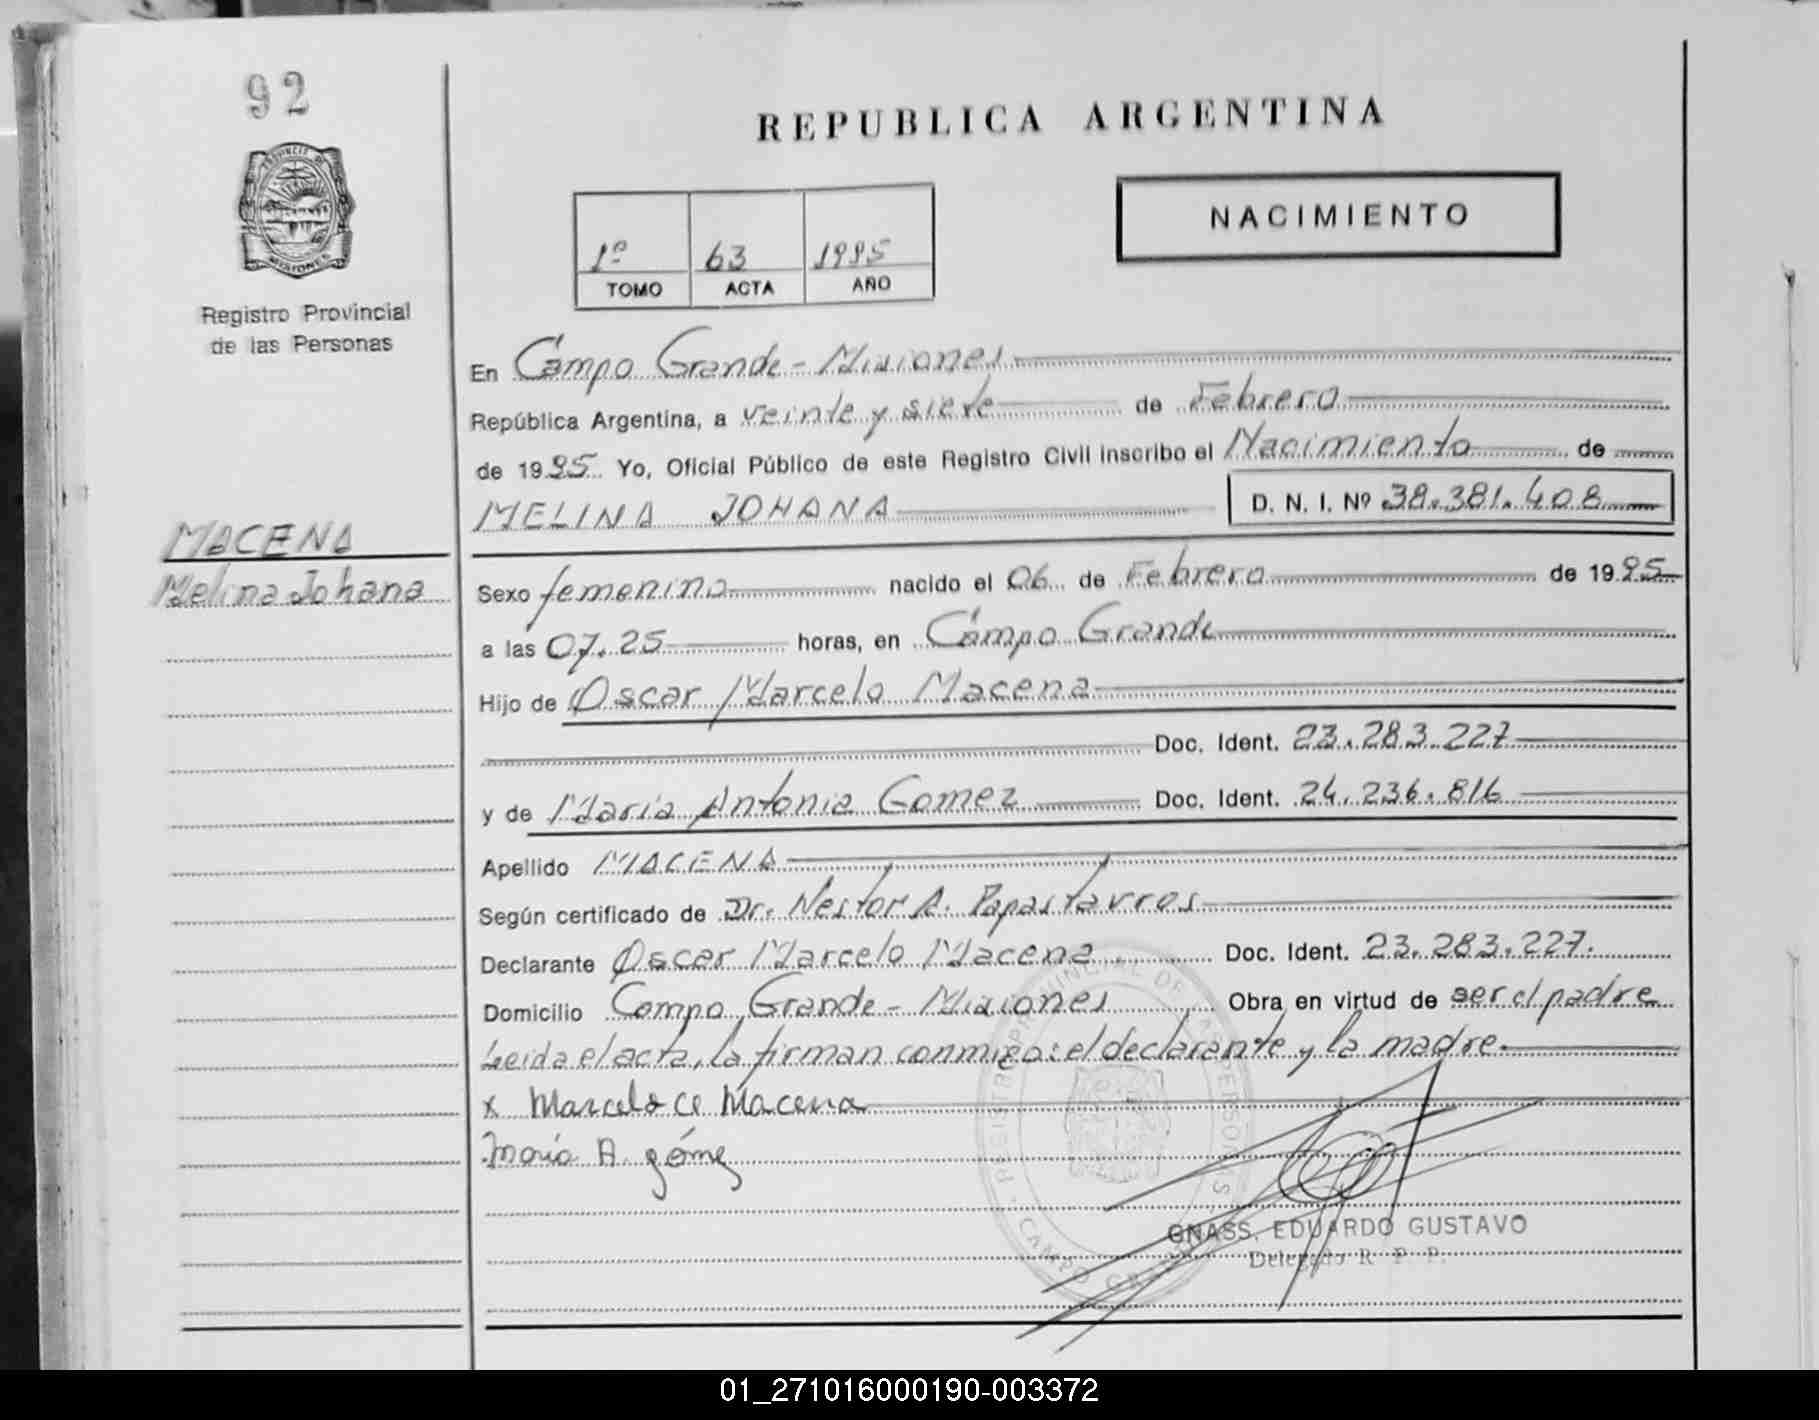 92
PROVINCIA DE
MISIONES
Registro Provincial
de las Personas
MACENA
Melina Johana
REPUBLICA ARGENTINA
NACIMIENTO
1º 63 1995
TOMO ACTA AÑO
En Campo Grande - Misiones
República Argentina, a veinte y siete de Febrero
de 1995 Yo, Oficial Público de este Registro Civil inscribo el Nacimiento de
MELINA JOHANA D. N. I. Nº 38.381.408
Sexo femenino nacido el 06 de Febrero de 1995
a las 07.25 horas, en Campo Grande
Hijo de Oscar Marcelo Macena
Doc. Ident. 23.283.227
y de Maria Antonia Gomez Doc. Ident. 24.236.816
Apellido MACENA
Según certificado de Dr. Nestor A. Papastavros
Declarante Oscar Marcelo Macena Doc. Ident. 23.283.227.
Domicilio Campo Grande - Misiones Obra en virtud de ser el padre
Leida el acta, la firman conmigo: el declarante y la madre.
x Marcelo Macena
Maria A. góme
REGISTRO PROVINCIAL DE LAS PERSONAS
CAMPO GRANDE
GNASS, EDUARDO GUSTAVO
Delegado R. P. P.
01_271016000190-003372